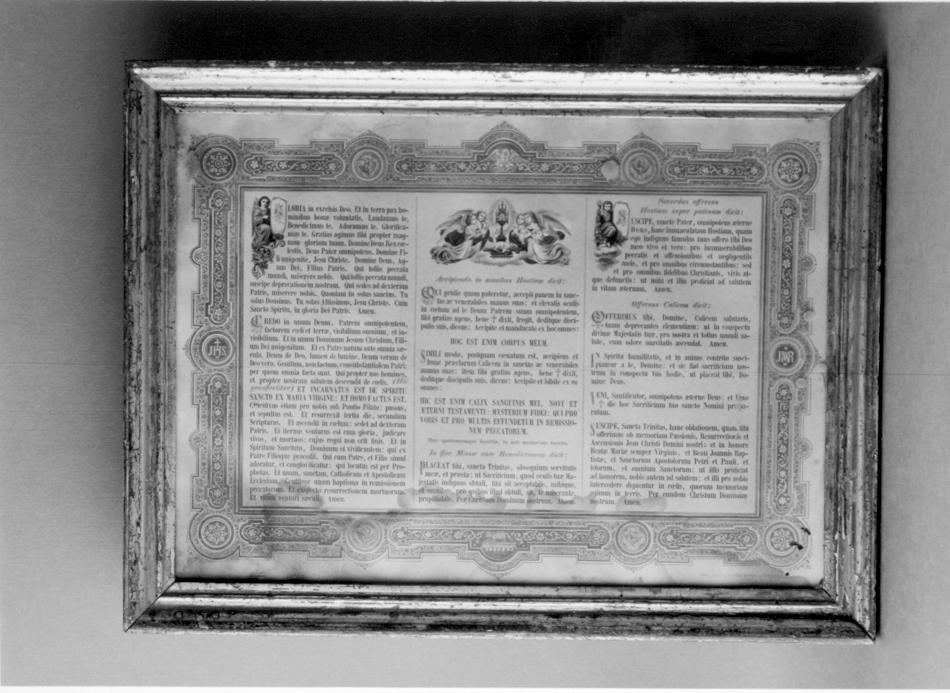 GLORIA in excelsis Deo. Et in terra pax ho-
minibus bonæ voluntatis. Laudamus te.
Benedicimus te. Adoramus te. Glorifica-
mus te. Gratias agimus tibi propter mag-
nam gloriam tuam. Domine Deus Rex cœ-
lestis, Deus Pater omnipotens. Domine Fi-
li unigenite, Jesu Christe. Domine Deus, Ag-
nus Dei, Filius Patris. Qui tollis peccata
mundi, miserere nobis. Qui tollis peccata mundi,
suscipe deprecationem nostram. Qui sedes ad dexteram
Patris, miserere nobis. Quoniam tu solus sanctus. Tu
solus Dominus. Tu solus Altissimus, Jesu Christe. Cum
Sancto Spiritu, in gloria Dei Patris. Amen.
CREDO in unum Deum, Patrem omnipotentem,
factorem cœli et terræ, visibilium omnium, et in-
visibilium. Et in unum Dominum Jesum Christum, Fili-
um Dei unigenitum. Et ex Patre natum ante omnia sæ-
cula. Deum de Deo, lumen de lumine, Deum verum de
Deo vero. Genitum, non factum, consubstantialem Patri:
per quem omnia facta sunt. Qui propter nos homines,
et propter nostram salutem descendit de cœlis. (Hic
genuflectitur) ET INCARNATUS EST DE SPIRITU
SANCTO EX MARIA VIRGINE: ET HOMO FACTUS EST.
Crucifixus etiam pro nobis sub Pontio Pilato: passus,
et sepultus est. Et resurrexit tertia die, secundum
Scripturas. Et ascendit in cœlum: sedet ad dexteram
Patris. Et iterum venturus est cum gloria, judicare
vivos, et mortuos: cujus regni non erit finis. Et in
Spiritum Sanctum, Dominum et vivificantem: qui ex
Patre Filioque procedit. Qui cum Patre, et Filio simul
adoratur, et conglorificatur: qui locutus est per Pro-
phetas. Et unam, sanctam, Catholicam et Apostolicam
Ecclesiam. Confiteor unum baptisma in remissionem
peccatorum. Et exspecto resurrectionem mortuorum.
Et vitam venturi sæculi. Amen.
Accipiendo in manibus Hostiam dicit:
QUI pridie quam pateretur, accepit panem in sanc-
tas ac venerabiles manus suas: et elevatis oculis
in cœlum ad te Deum Patrem suum omnipotentem,
tibi gratias agens, bene † dixit, fregit, deditque disci-
pulis suis, dicens: Accipite et manducate ex hoc omnes:
HOC EST ENIM CORPUS MEUM.
SIMILI modo, postquam cœnatum est, accipiens et
hunc præclarum Calicem in sanctas ac venerabiles
manus suas: item tibi gratias agens, bene † dixit,
deditque discipulis suis, dicens: Accipite et bibite ex eo
omnes:
HIC EST ENIM CALIX SANGUINIS MEI, NOVI ET
ETERNI TESTAMENTI: MYSTERIUM FIDEI: QUI PRO
VOBIS ET PRO MULTIS EFFUNDETUR IN REMISSIO-
NEM PECCATORUM.
Hæc quotiescumque feceritis, in mei memoriam facietis.
In fine Missæ ante Benedictionem dicit:
PLACEAT tibi, sancta Trinitas, obsequium servitutis
meæ, et præsta: ut Sacrificium, quod oculis tuæ Ma-
jestatis indignus obtuli, tibi sit acceptabile, mihique,
et omnibus, pro quibus illud obtuli, sit, te miserante,
propitiabile. Per Christum Dominum nostrum. Amen.
Sacerdos offerens
Hostiam super patenam dicit:
SUSCIPE, sancte Pater, omnipotens æterne
Deus, hanc immaculatam Hostiam, quam
ego indignus famulus tuus offero tibi Deo
meo vivo et vero: pro innumerabilibus
peccatis et offensionibus et negligentiis
meis, et pro omnibus circumstantibus: sed
et pro omnibus fidelibus Christianis, vivis at-
que defunctis: ut mihi et illis proficiat ad salutem
in vitam æternam. Amen.
Offerens Calicem dicit:
OFFERIMUS tibi, Domine, Calicem salutaris,
tuam deprecantes clementiam: ut in conspectu
divinæ Majestatis tuæ, pro nostra et totius mundi sa-
lute, cum odore suavitatis ascendat. Amen.
IN Spiritu humilitatis, et in animo contrito susci-
piamur a te, Domine: et sic fiat sacrificium nos-
trum in conspectu tuo hodie, ut placeat tibi, Do-
mine Deus.
VENI, Sanctificator, omnipotens æterne Deus: et bene
† dic hoc Sacrificium tuo sancto Nomini præpa-
ratum.
SUSCIPE, Sancta Trinitas, hanc oblationem, quam tibi
offerimus ob memoriam Passionis, Resurrectionis et
Ascensionis Jesu Christi Domini nostri: et in honorem
Beatæ Mariæ semper Virginis, et Beati Joannis Bap-
tistæ, et Sanctorum Apostolorum Petri et Pauli, et
istorum, et omnium Sanctorum: ut illis proficiat
ad honorem, nobis autem ad salutem: et illi pro nobis
intercedere dignentur in cœlis, quorum memoriam
agimus in terris. Per eundem Christum Dominum
nostrum. Amen.